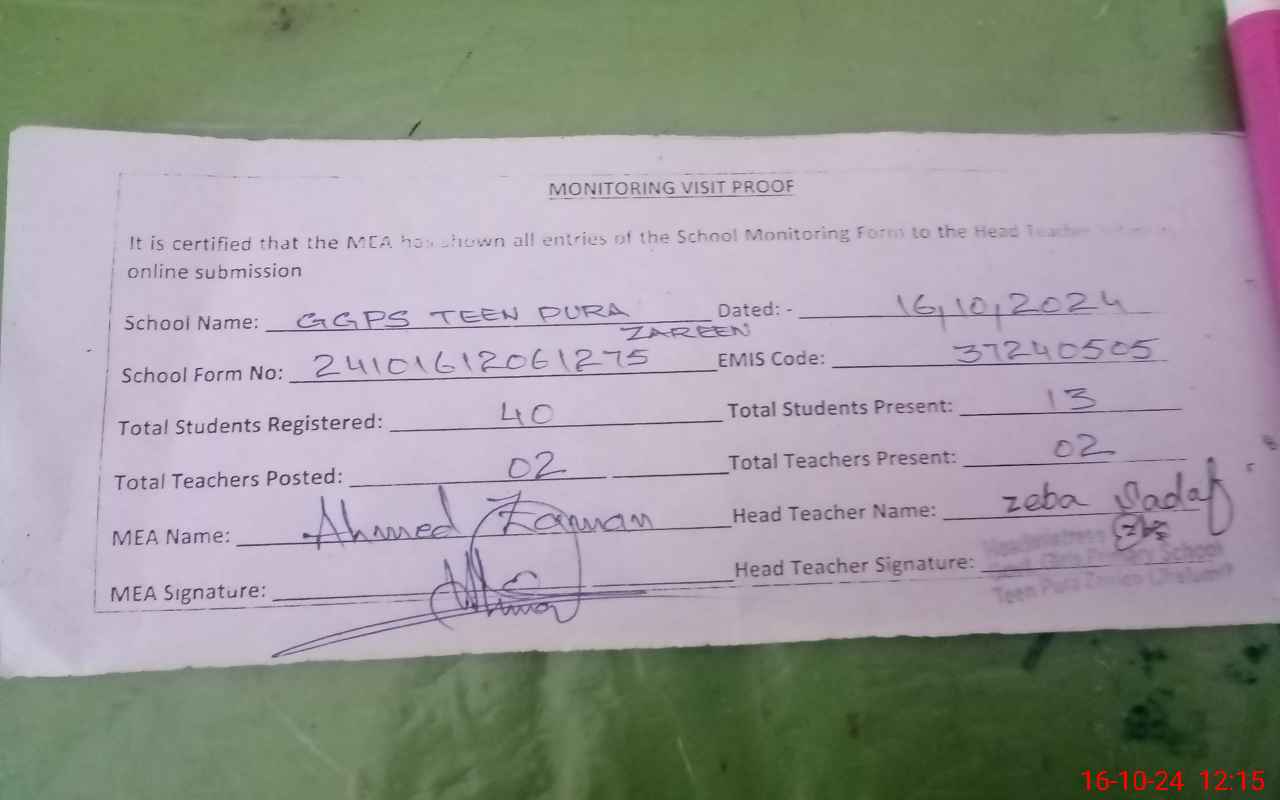 MONITORING VISIT PROOF
It is certified that the MEA has shown all entries of the School Monitoring Form to the Head Teacher
online submission
School Name: GGPS TEEN PURA ZAREEN Dated: - 16,10,2024
School Form No: 24101612061275 EMIS Code: 37240505
Total Students Registered: 40 Total Students Present: 13
Total Teachers Posted: 02 Total Teachers Present: 02
MEA Name: Ahmed Zaman Head Teacher Name: zeba Sadaf
MEA Signature: Head Teacher Signature:
Headmistress
Govt. Girls Primary School
Teen Pura Zareen (Jhelum)
16-10-24 12:15